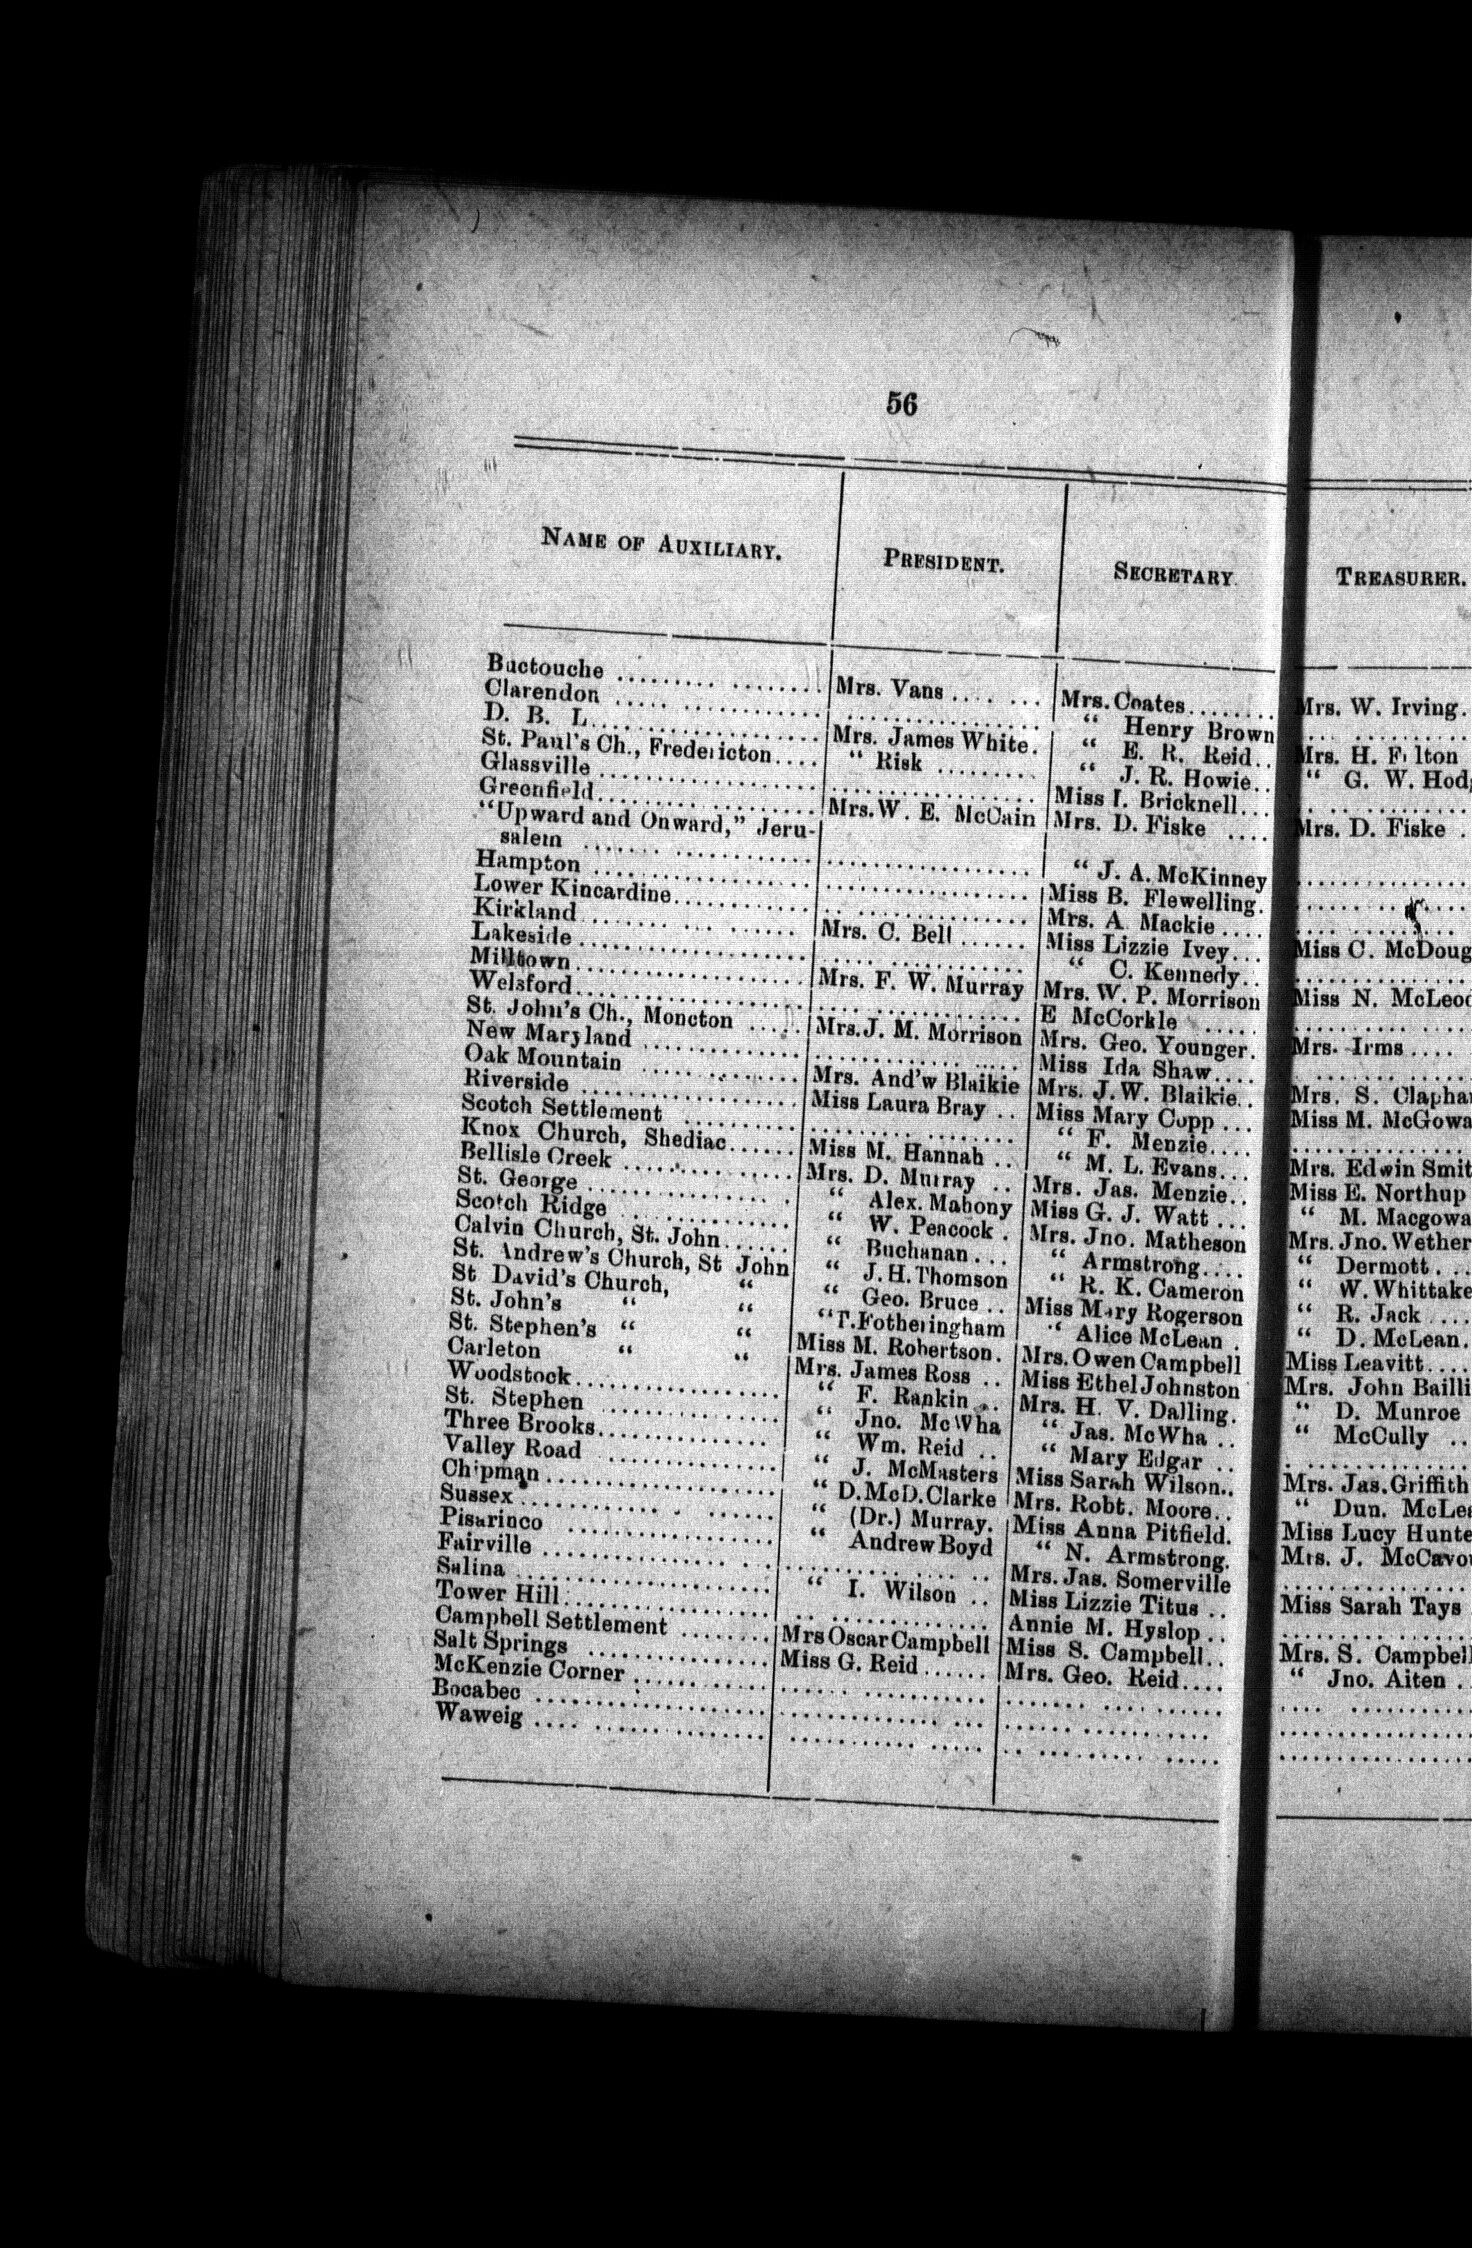 56
NAME OF AUXILIARY. PRESIDENT. SECRETARY. TREASURER.
Buctouche ........ Mrs. Vans .... ... Mrs. Coates........ Mrs. W. Irving.
Clarendon ........ ........ “ Henry Brown ........
D. B. L........ Mrs. James White. “ E. R. Reid.. Mrs. H. Fulton
St. Paul's Ch., Fredericton.... “ Risk ........ “ J. R. Howie.. “ G. W. Hodg
Glassville ........ ........ Miss I. Bricknell... ........
Greenfield........ Mrs. W. E. McCain Mrs. D. Fiske .... Mrs. D. Fiske .
“Upward and Onward,” Jeru-
salem ........ ........ “ J. A. McKinney ........
Hampton ........ ........ Miss B. Flewelling. ........
Lower Kincardine........ ........ Mrs. A Mackie .... ........
Kirkland........ Mrs. C. Bell ...... Miss Lizzie Ivey... Miss C. McDoug
Lakeside........ ........ “ C. Kennedy.. ........
Milltown........ Mrs. F. W. Murray Mrs. W. P. Morrison Miss N. McLeod
Welsford........ ........ E McCorkle ...... ........
St. John's Ch., Moncton ..... Mrs. J. M. Morrison Mrs. Geo. Younger. Mrs. Irms....
New Maryland ........ ........ Miss Ida Shaw.... ........
Oak Mountain ........ Mrs. And'w Blaikie Mrs. J. W. Blaikie.. Mrs. S. Clapha
Riverside ........ Miss Laura Bray .. Miss Mary Copp ... Miss M. McGowa
Scotch Settlement ........ ........ “ F. Menzie.... ........
Knox Church, Shediac...... Miss M. Hannah .. “ M. L. Evans... Mrs. Edwin Smit
Bellisle Creek ........ Mrs. D. Murray .. Mrs. Jas. Menzie.. Miss E. Northup
St. George ........ “ Alex. Mahony Miss G. J. Watt ... “ M. Macgowa
Scotch Ridge ........ “ W. Peacock . Mrs. Jno. Matheson Mrs. Jno. Wether
Calvin Church, St. John...... “ Buchanan... “ Armstrong.... “ Dermott...
St. Andrew's Church, St John “ J. H. Thomson “ R. K. Cameron “ W. Whittake
St David's Church, “ “ Geo. Bruce .. Miss Mary Rogerson “ R. Jack ....
St. John's “ “ “ T. Fotheringham “ Alice McLean . “ D. McLean.
St. Stephen's “ “ Miss M. Robertson. Mrs. Owen Campbell Miss Leavitt....
Carleton “ “ Mrs. James Ross .. Miss Ethel Johnston Mrs. John Bailli
Woodstock........ “ F. Rankin .. Mrs. H. V. Dalling. “ D. Munroe
St. Stephen ........ “ Jno. McWha “ Jas. McWha .. “ McCully ..
Three Brooks........ “ Wm. Reid .. “ Mary Edgar .. ........
Valley Road ........ “ J. McMasters Miss Sarah Wilson.. Mrs. Jas. Griffith
Chipman ........ “ D. McD. Clarke Mrs. Robt. Moore.. “ Dun. McLea
Sussex ........ “ (Dr.) Murray. Miss Anna Pitfield. Miss Lucy Hunte
Pisarinco ........ “ Andrew Boyd “ N. Armstrong. Mrs. J. McCavou
Fairville ........ ........ Mrs. Jas. Somerville ........
Salina ........ “ I. Wilson .. Miss Lizzie Titus .. Miss Sarah Tays
Tower Hill........ ........ Annie M. Hyslop .. ........
Campbell Settlement ....... Mrs Oscar Campbell Miss S. Campbell.. Mrs. S. Campbell
Salt Springs ........ Miss G. Reid ...... Mrs. Geo. Reid.... “ Jno. Aiten ..
McKenzie Corner ........ ........ ........ ........
Bocabec ........ ........ ........ ........
Waweig ........ ........ ........ ........